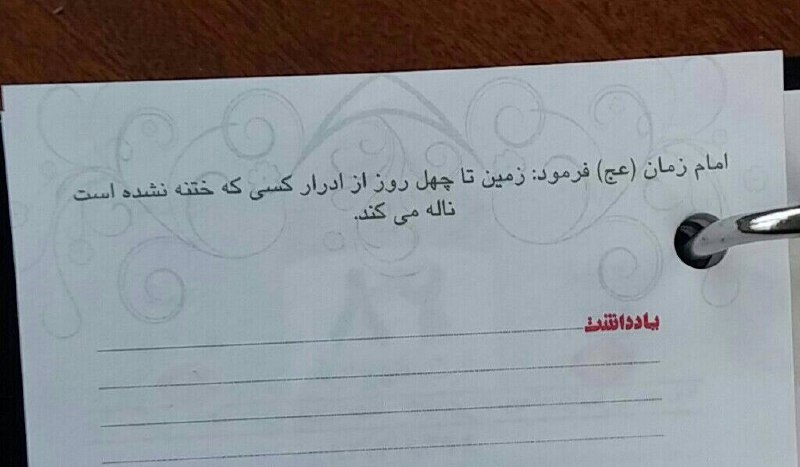 امام زمان (عج) فرمود: زمین تا چهل روز از ادرار کسی که ختنه نشده است
ناله می کند.
یادداشت